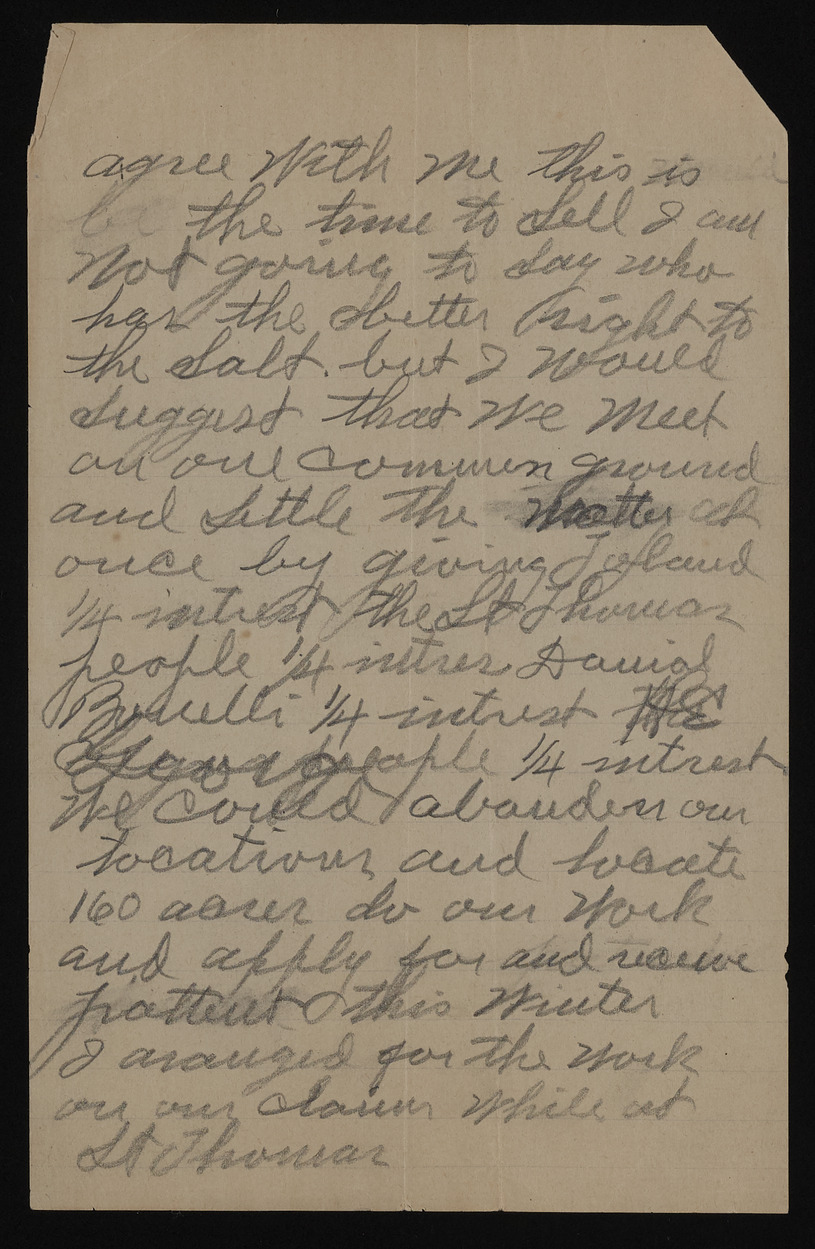 agree With Me this is
the time to Sell I am
Not going to Say who
has the better right to
the Salt. but I Would
Suggest that We Meet
on one Common ground
and Settle the Matter at
once by giving Jofland
1/4 intrest the St Thomas
people 1/4 intres David
Bonelli 1/4 intrest the
people 1/4 intrest.
We Could abanden our
locations and locate
160 acres do our Work
and apply for and receive
pattent this Winter
I aranged for the Work
on our Claims While at
St Thomas